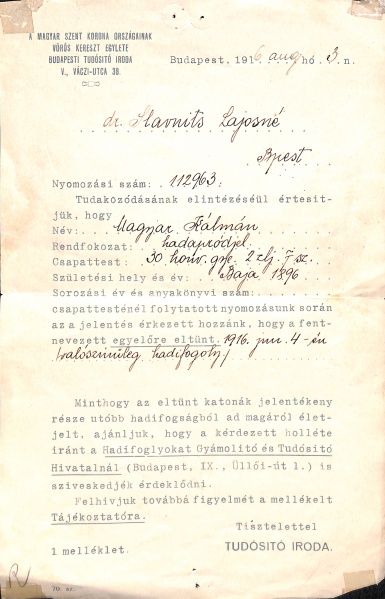 A MAGYAR SZENT KORONA ORSZÁGAINAK
VÖRÖS KERESZT EGYLETE
BUDAPESTI TUDÓSITÓ IRODA
V., VÁCZI-UTCA 38.
Budapest. 1916 aug hó 3. n.
dr. Slavnits Lajosné
Bpest
Nyomozási szám: 112963.
Tudakozódásának elintézéséül értesit-
jük, hogy
Név: Magyar Kálmán
Rendfokozat: hadapródjel.
Csapattest: 30 honv. gye. 2 zlj. F sz.
Születési hely és év: Baja 1896
Sorozási év és anyakönyvi szám:
csapattesténél folytatott nyomozásunk során
az a jelentés érkezett hozzánk, hogy a fent-
nevezett egyelőre eltünt. 1916 jun. 4-én
(valószinüleg hadifogoly)
Minthogy az eltünt katonák jelentékeny
része utóbb hadifogságból ad magáról élet-
jelt, ajánljuk, hogy a kérdezett holléte
iránt a Hadifoglyokat Gyámolitó és Tudósitó
Hivatalnál (Budapest, IX., Üllői-út 1.) is
sziveskedjék érdeklődni.
Felhivjuk továbbá figyelmét a mellékelt
Tájékoztatóra.
Tisztelettel
1 melléklet.
TUDÓSITÓ IRODA.
10. sz.